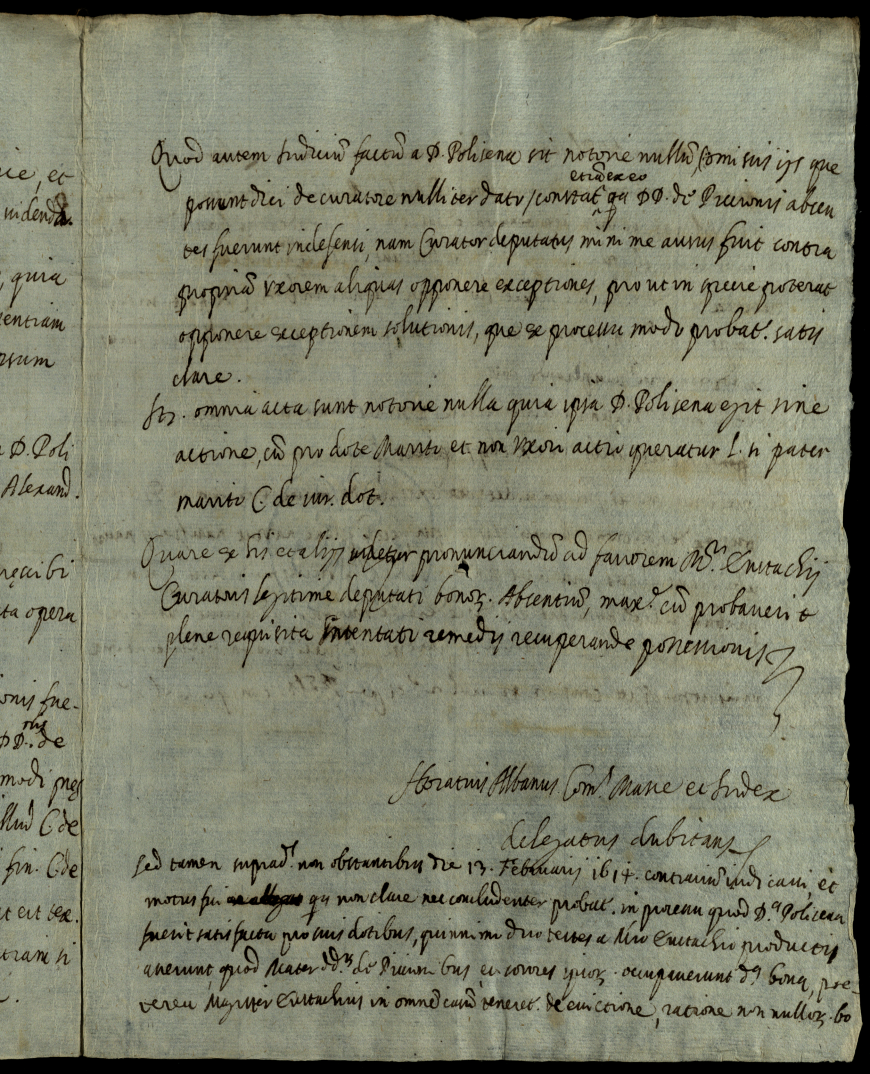 ie, et
uidenda.
, quia
sentiam
rsum
a D. Poli
Alexand.
ta opera
onis fue-
DD. de
modi
illud C. de
fin. C. de
ut est tex.
etiam si
Quod autem Iudiciũ factũ a D. Polisena sit notorie nullũ, omissis ijs que
etiã ex eo
possunt dici de curatore nulliter dato, constat qa DD. de Piccionis absen
tes fuerunt indefensi, nam Curator deputatus minime ausus fuit contra
propriã vxorem aliquas opponere exceptiones, prout in specie poterat
opponere exceptionem solutionis, que ex processu modo probat. satis
clare.
Itẽ. omnia acta sunt notorie nulla quia ipsa D. Polisena egit sine
actione, cũ pro dote Marito et non vxori actio queratur l. si pater
mariti C. de iur. dot.
Quare ex his et alijs uidetur pronunciandũ ad fauorem Mri Eustachij
Curatoris legitime deputati bonoꝝ. Absentiũ, maxe cũ probauerit
plene requisita intentati remedij recuperande possessionis
Horatius Albanus Com. Masse et Iudex
delegatus dubitans
Sed tamen supradi. non obstantibus die 13. Februarij 1614. contrariũ iudicaui, et
motus fui qa non clare nec concludenter probat. in processu quod Da Polisena
fuerit satisfacta pro suis dotibus, quinnimo duo testes a Mro Eustachio producti
asserunt, quod Mater dd. de Piccionibus, et sorores ipsoꝝ. occupauerunt da bona, proe-
terea Magister Eustachius in omnẽ casũ teneret. de euictione, ratione non nulloꝝ. bo